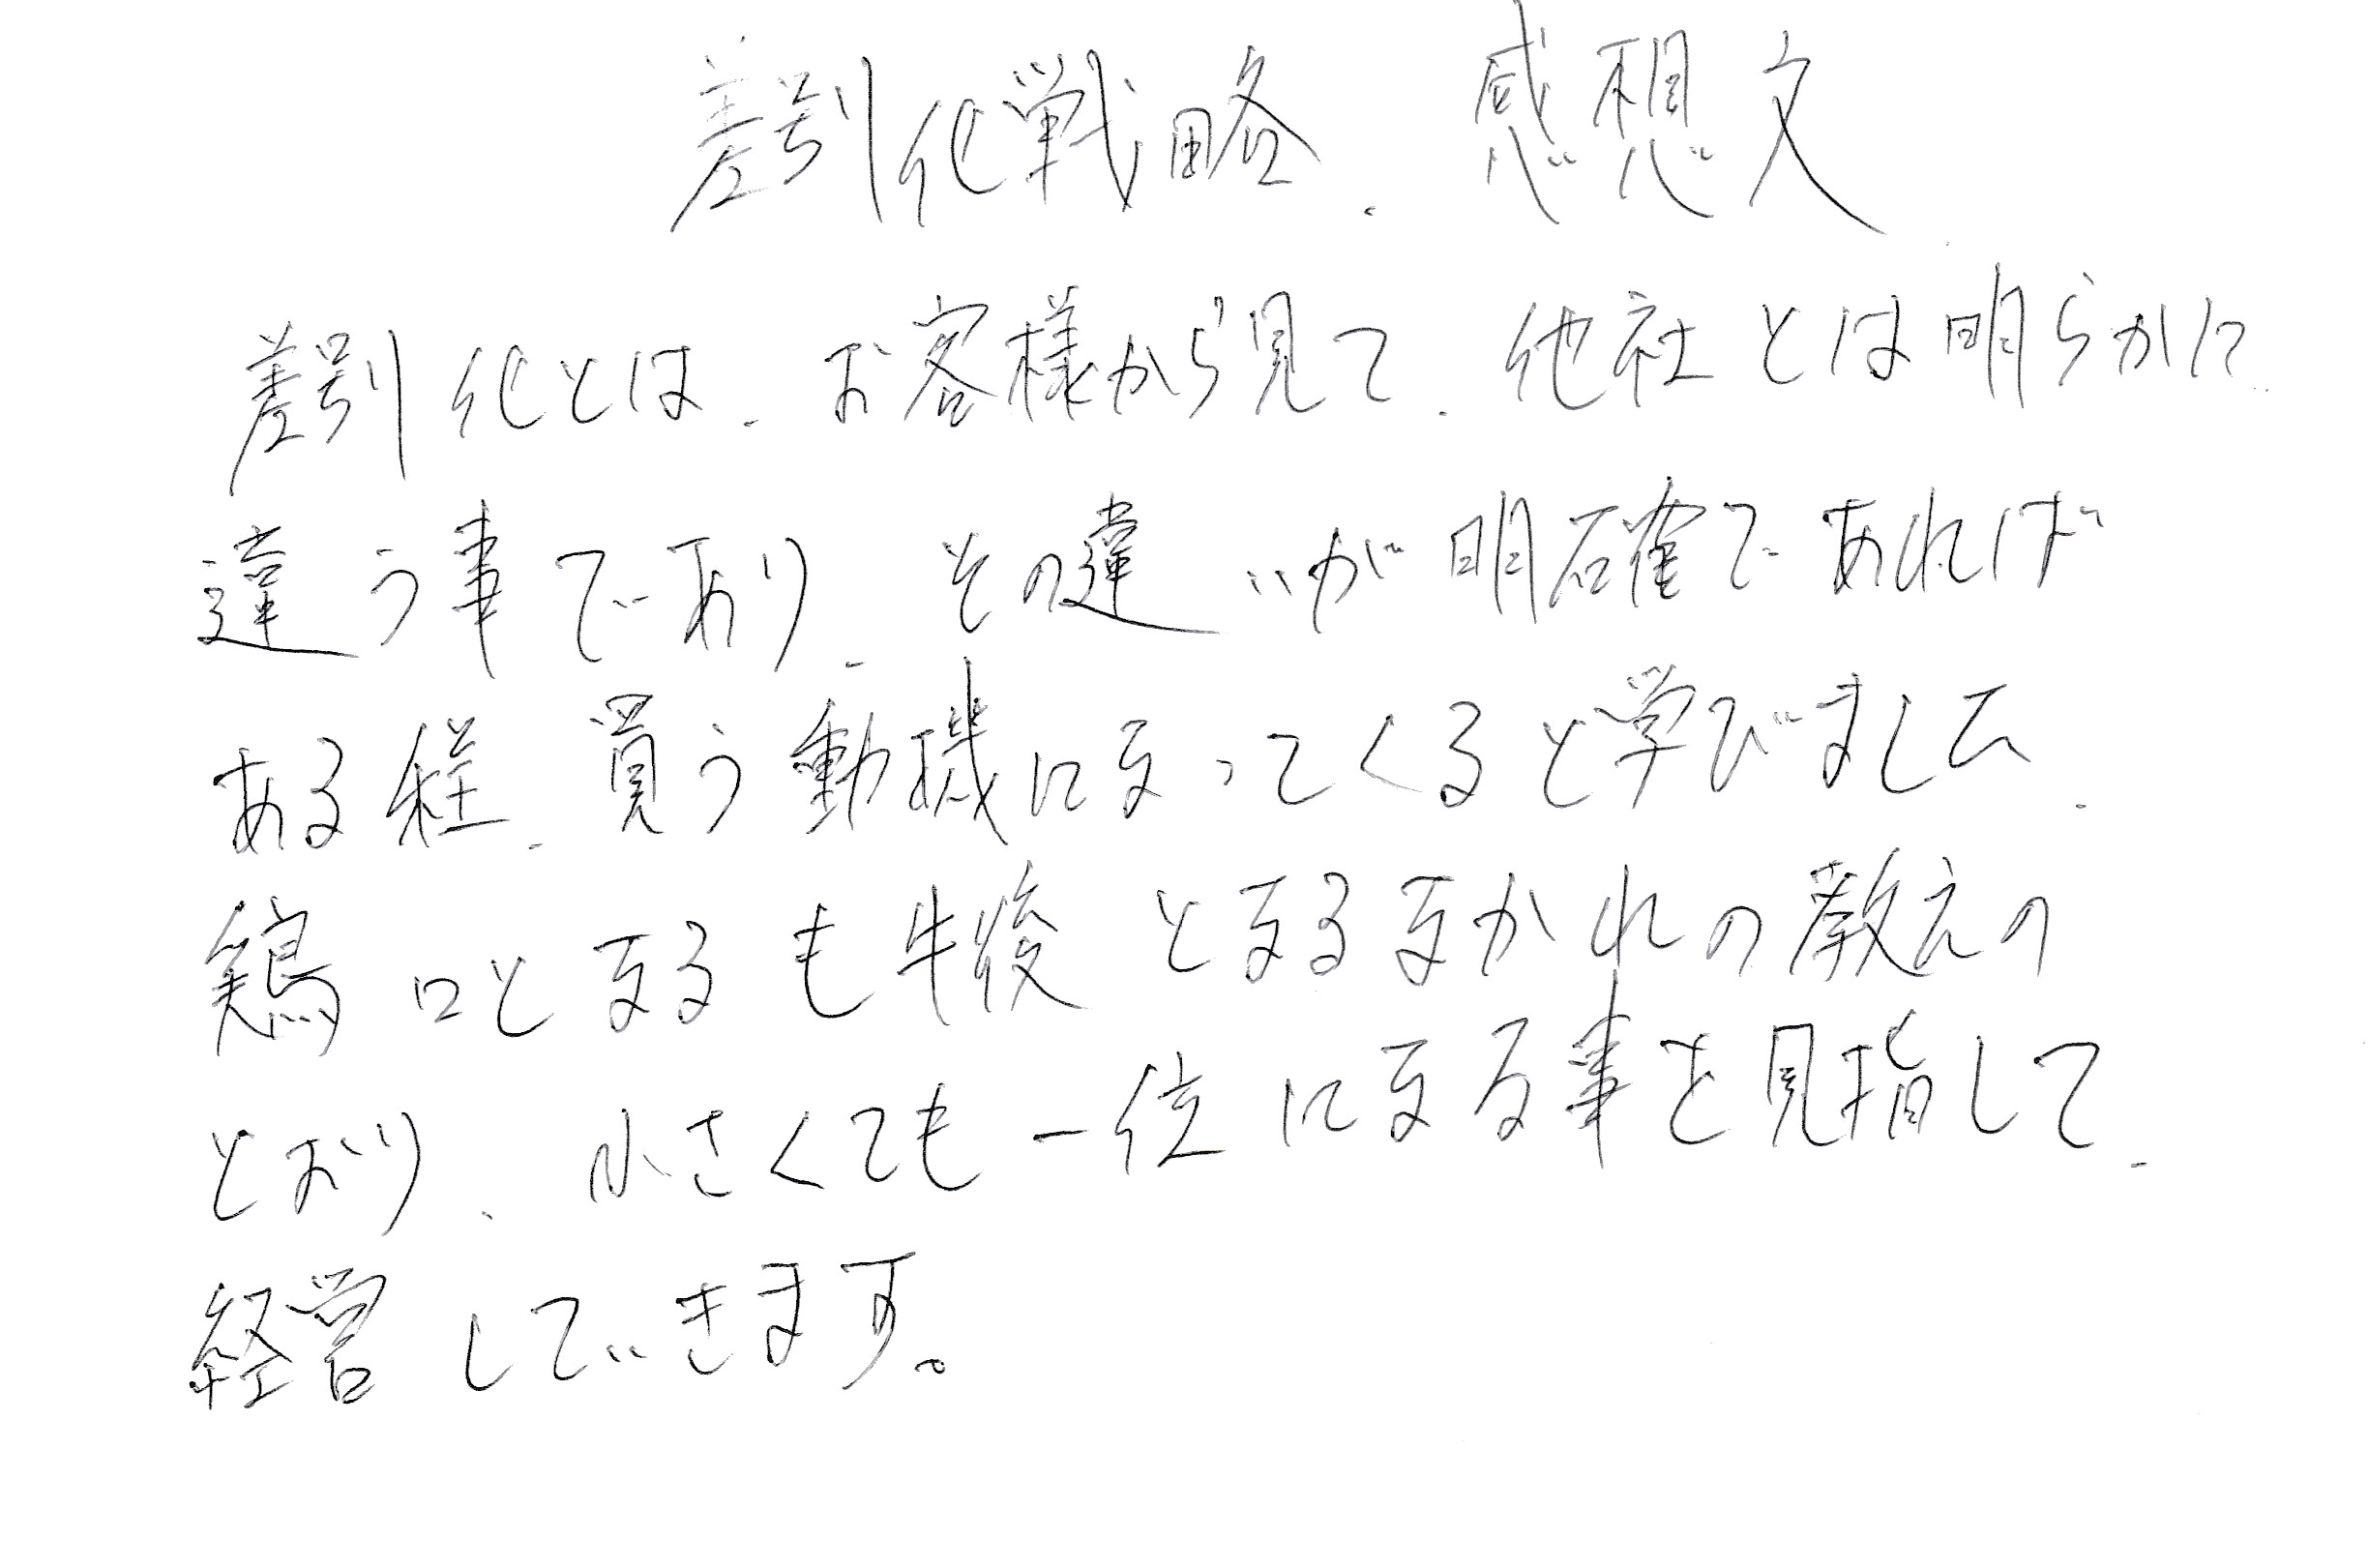 差別化戦略、感想文
差別化とは、お客様から見て、他社とは明らかに
違う事であり、その違いが明確であれば
ある程、買う動機になってくると学びました。
鶏口となるも牛後となるなかれの教えの
とおり、小さくても一位になる事を見指して、
経営していきます。